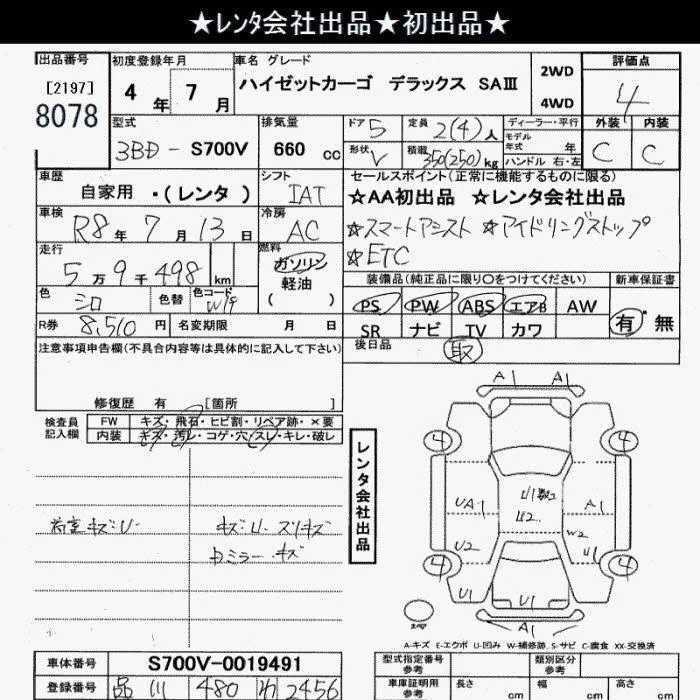 ★レンタ会社出品★初出品★
出品番号
[2197]
8078
初度登録年月
4年7月
車名 グレード
ハイゼットカーゴ デラックス SAⅢ
2WD
4WD
評価点
4
外装 内装
C C
型式
3BD-S700V
排気量
660 cc
ドア 5
形状 V
定員 2(4)人
積載 350(250)kg
ディーラー・平行
モデル年式 年
ハンドル 右・左
車歴
自家用 ・(レンタ)
シフト
IAT
車検
R8年7月13日
冷房
AC
走行
5万9千498 km
燃料
ガソリン
軽油
( )
色
シロ
色替
色コード
W19
R券 8,510 円
名変期限 月 日
セールスポイント(正常に機能するものに限る)
☆AA初出品 ☆レンタ会社出品
☆スマートアシスト ☆アイドリングストップ
☆ETC
装備品(純正品に限り○をつけてください)
PS PW ABS エアB AW
SR ナビ TV カワ
新車保証書
有・無
後日品
取
注意事項申告欄(不具合内容等は具体的に記入して下さい)
修復歴 有 [箇所 ]
検査員記入欄
FW キズ・飛石・ヒビ割・リペア跡・×要
内装 キズ・汚レ・コゲ・穴・スレ・キレ・破レ
荷室キズU
キズU スリキズ
ミラー キズ
レンタ会社出品
A1 A1
4 4
UA1 U1 A1
U2 U2 W2
U1
4 4
U1
A1
A-キズ E-エクボ U-凹み W-補修跡, S-サビ C-腐食 XX-交換済
車体番号 S700V-0019491
登録番号 品川 480 わ 2456
型式指定番号 参考
類別区分 参考
車庫証明用 参考
長さ cm
幅 cm
高さ cm